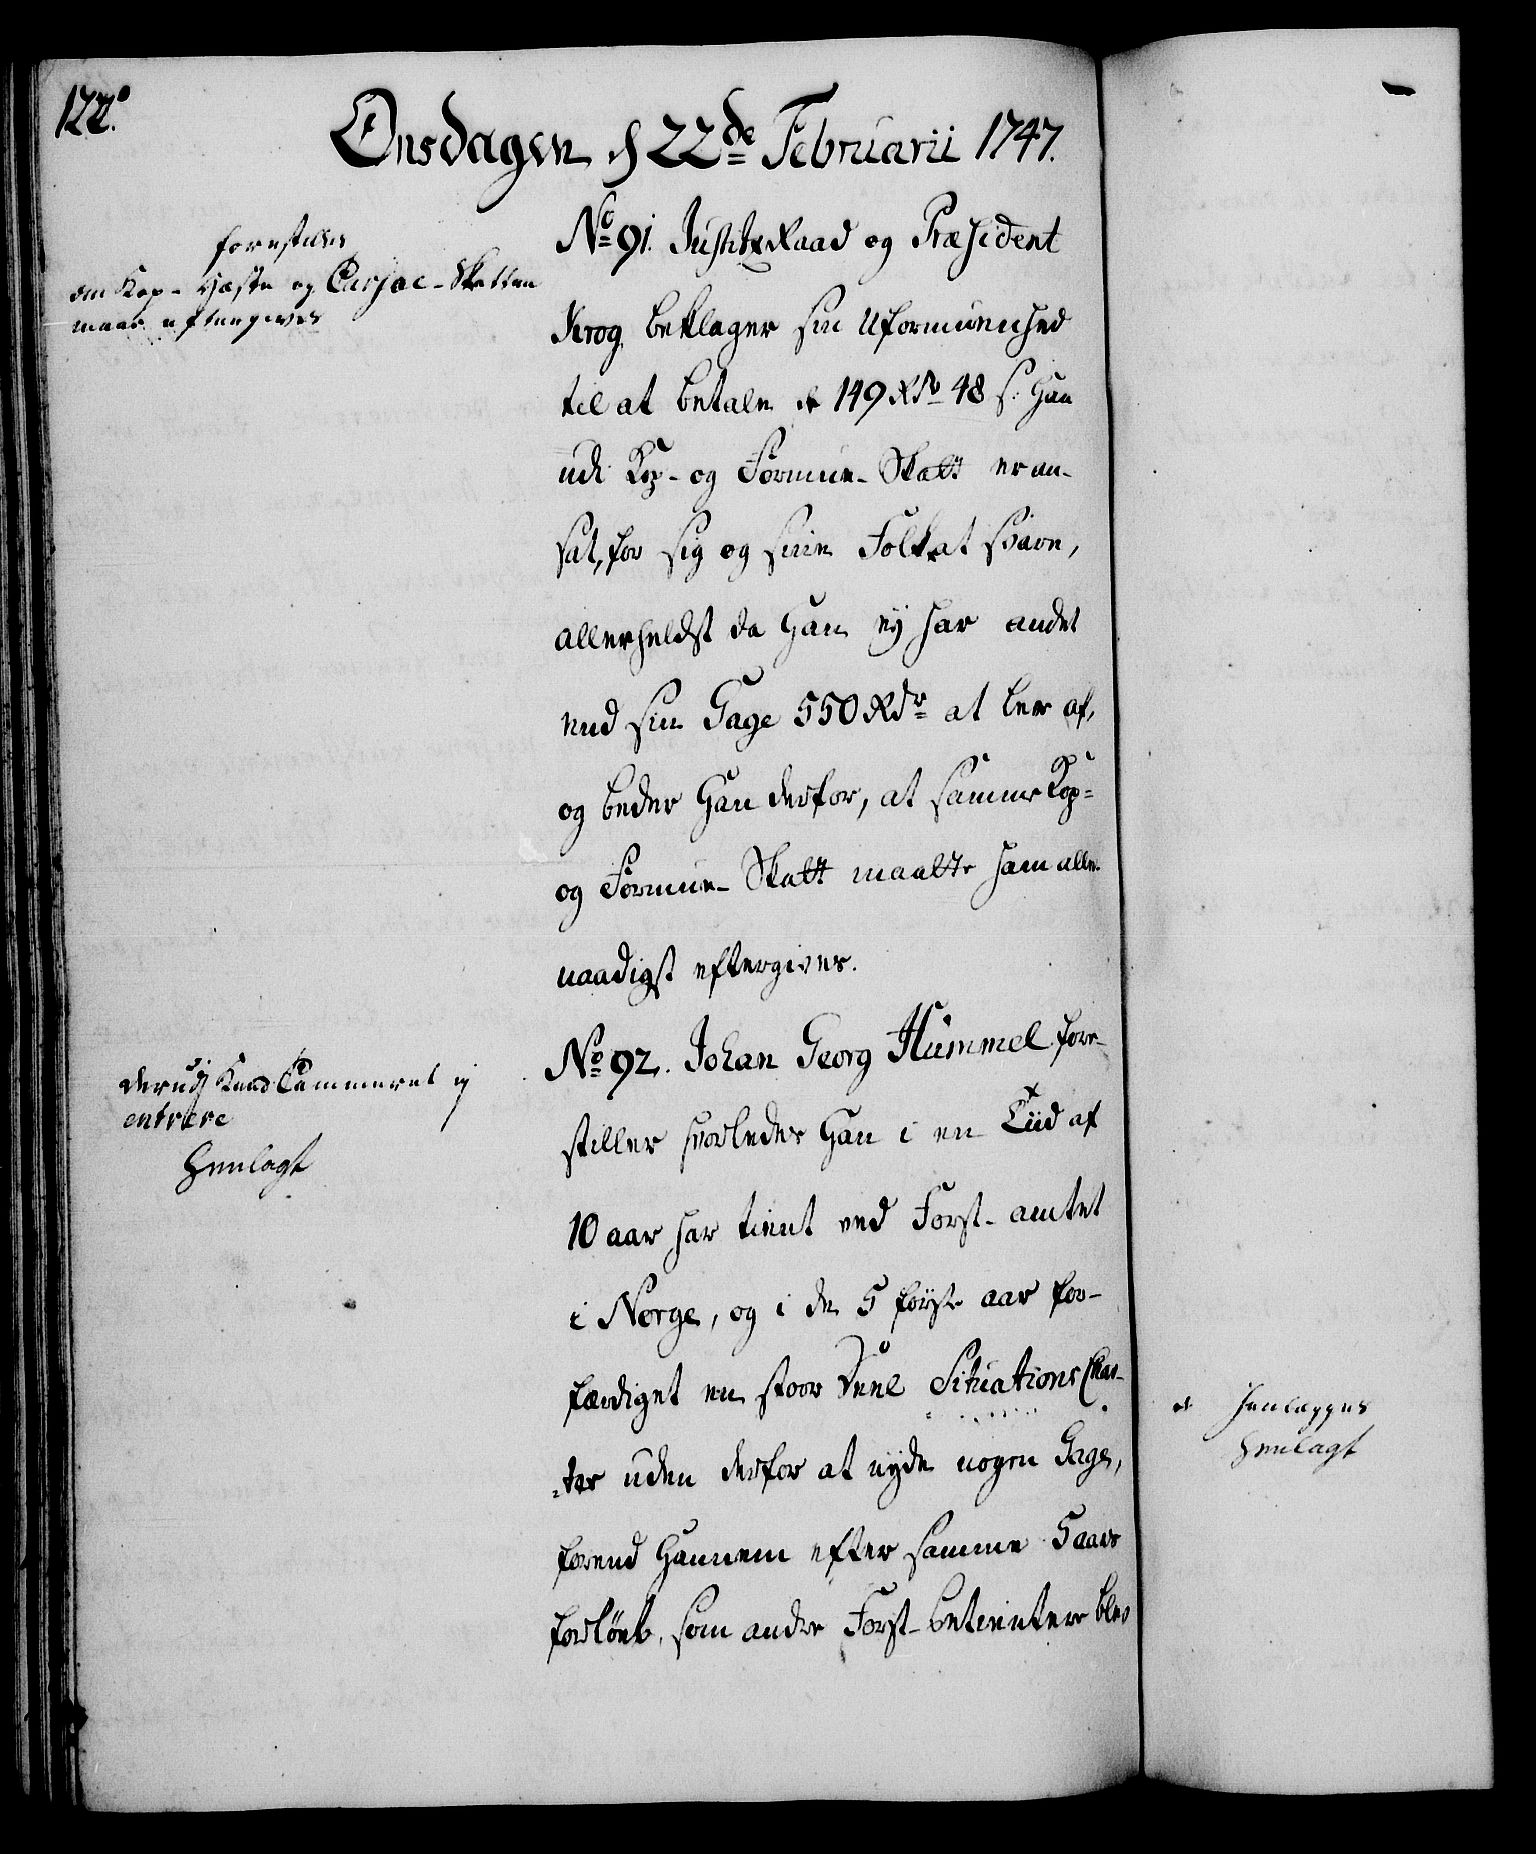 122.
Onsdagen d 22de Februarii 1747.
forestilles
om Kop- Heste og Carjol-Skatten
maae eftergives
No 91. Justitz Raad og Præsident
Krog beklager sin Uformuenhed
til at betale de 149 Rdr 48 s. Han
udi Kop- og Formue-Skatt er an-
sat, for sig og sine Folk at svare,
allerheldst da Han ey har andet
end sin Gage 550 Rdr at leve af,
og beder Han derfor, at samme Kop-
og Formue-Skatt maatte ham aller-
naadigst eftergives.
derudj Kand Cammeret ej
entrere
Henlagt
No 92. Johan Georg Hummel fore-
stiller hvorledes Han i en Tiid af
10 aar har tient ved Forst-amtet
i Norge, og i de 5 første aar for-
færdiget en stoor Deel Situations Char-
ter uden derfor at nyde nogen Gage,
førend Hannem efter samme 5 aars
forløb, som andre Forst-betienter blev
henlægges
Henlagt